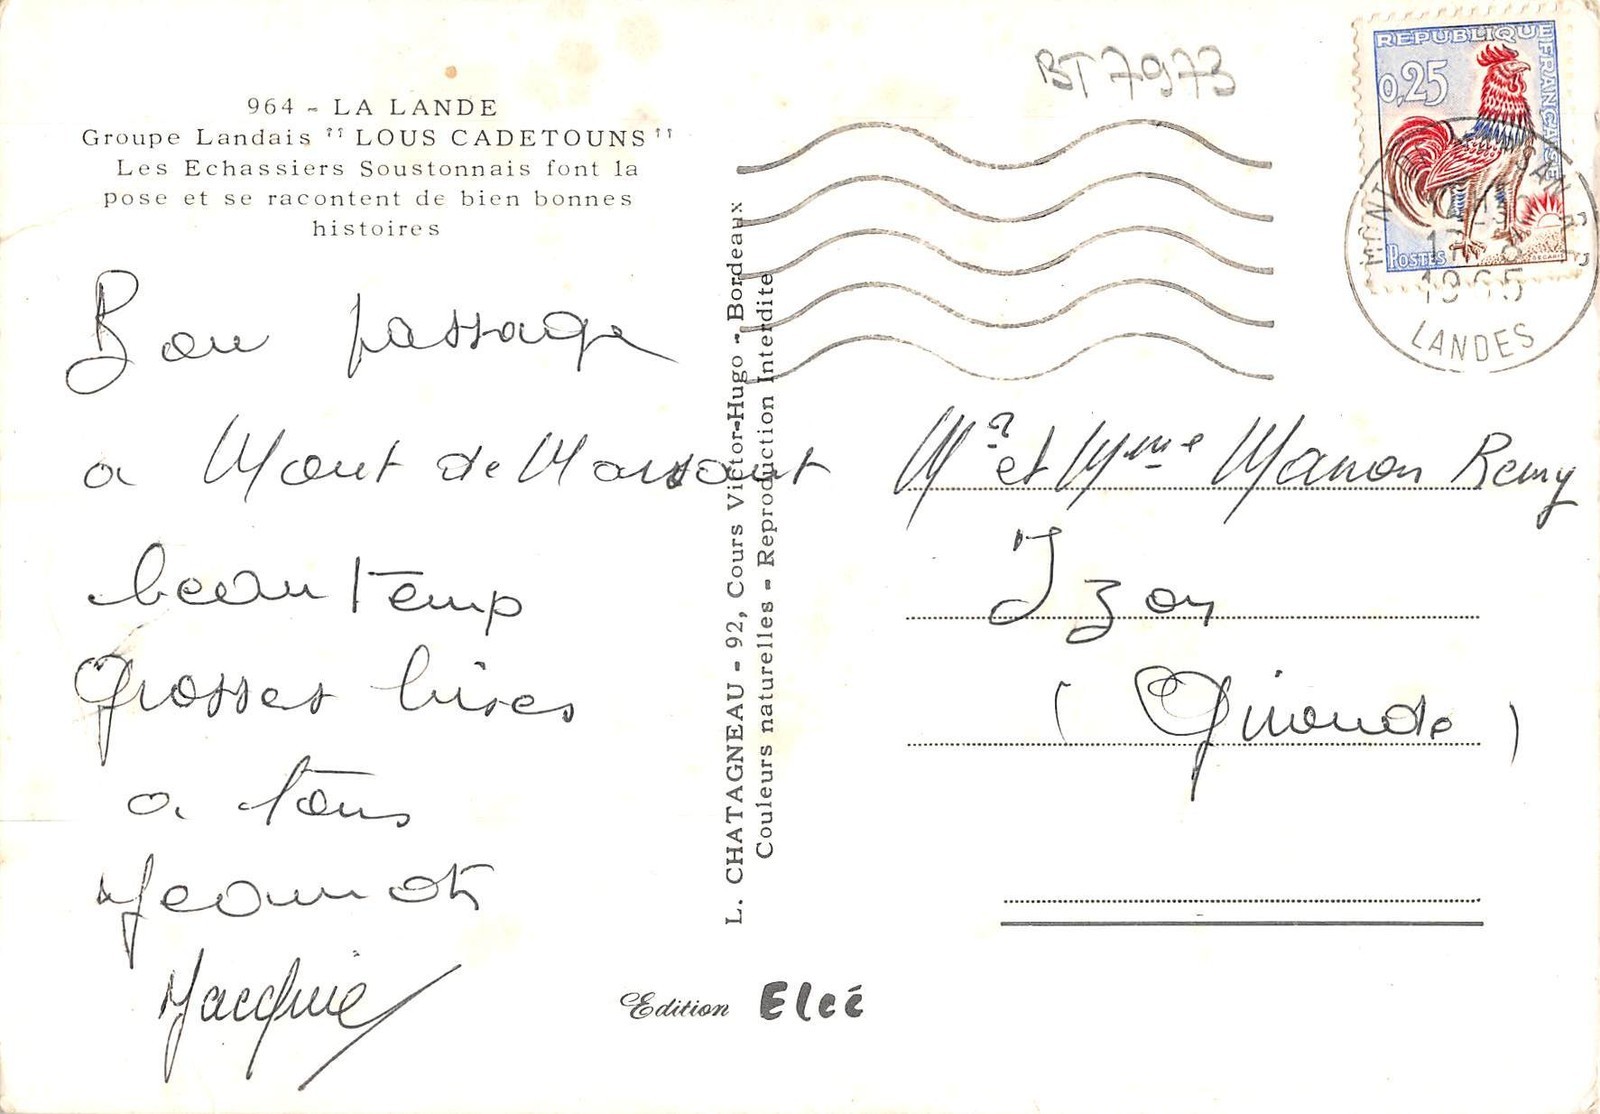 964 - LA LANDE
Groupe Landais "LOUS CADETOUNS"
Les Echassiers Soustonnais font la
pose et se racontent de bien bonnes
histoires
Bon passage
a Mont de Marsant
beau temp
Grosses bises
a tous
Jeannot
Jacquie
L. CHATAGNEAU - 92, Cours Victor-Hugo - Bordeaux
Couleurs naturelles - Reproduction Interdite
Edition Elcé
BT 7973
REPUBLIQUE FRANÇAISE
0,25
POSTES
1965
LANDES
Mr et Mme Manon Remy
Izon
(Gironde)